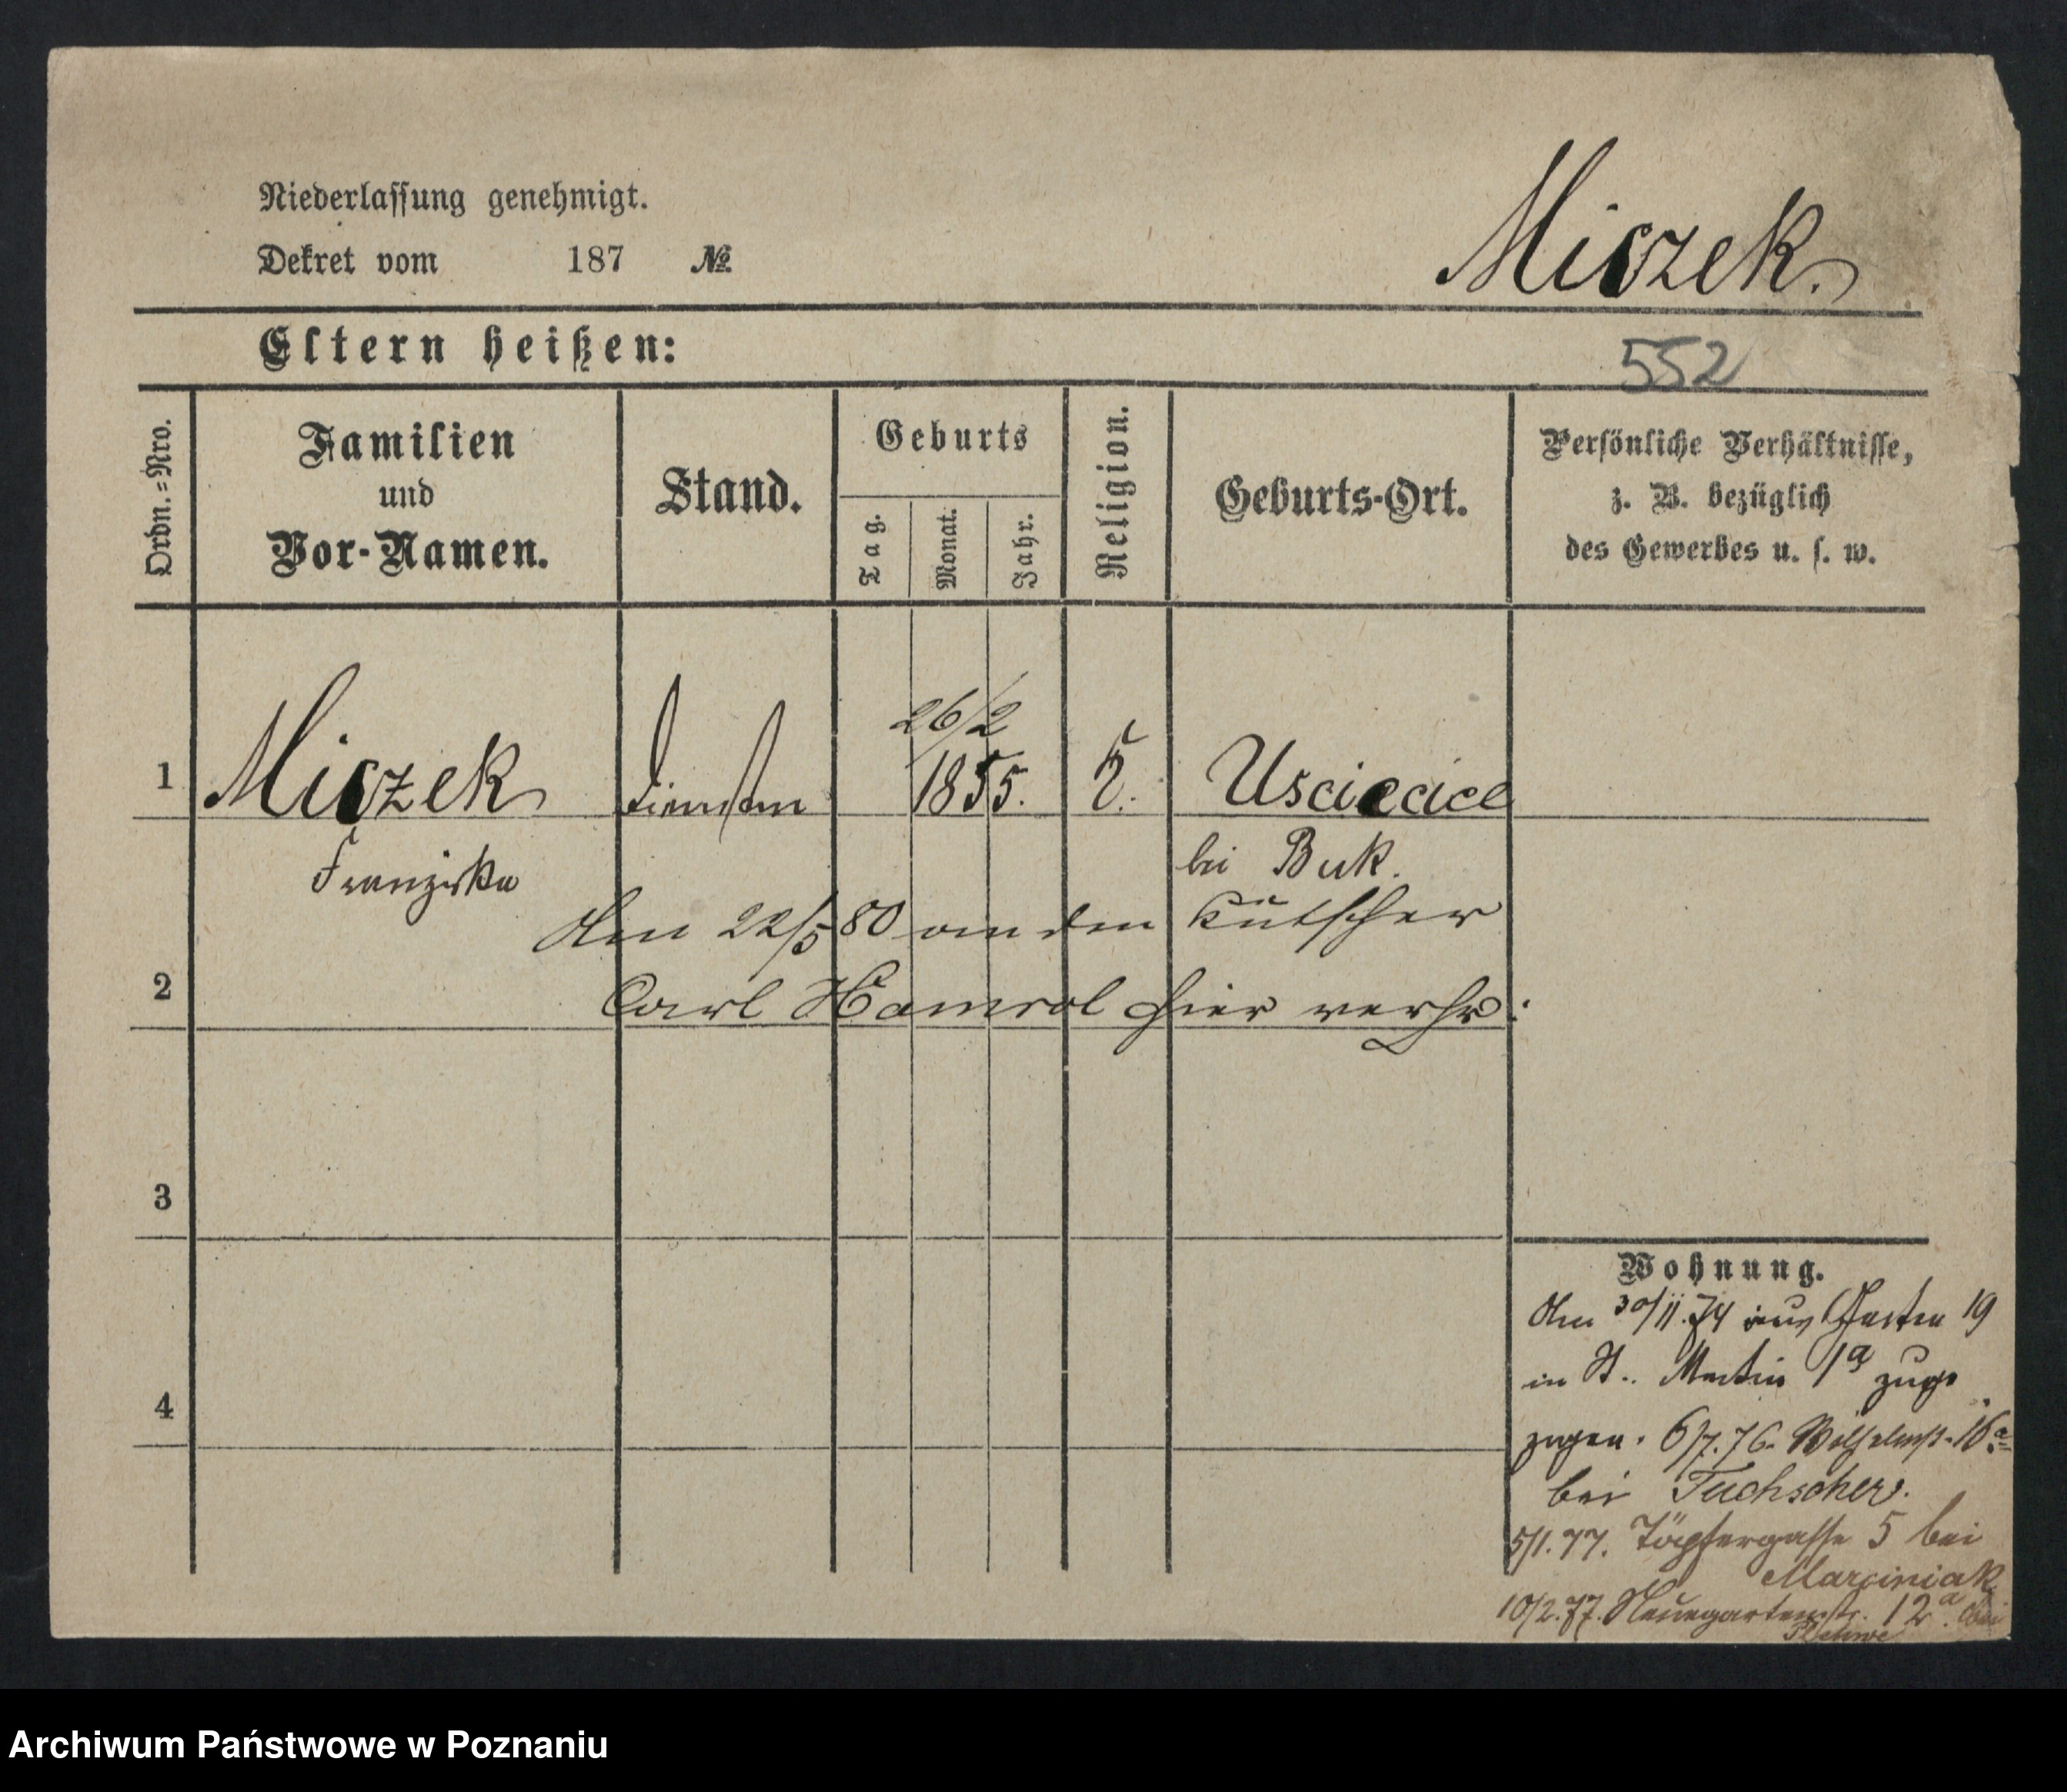 Niederlassung genehmigt.
Dekret vom 187 №
Miszek.
Eltern heißen:
552
Ordn.=Nro.
Familien
und
Vor-Namen.
Stand.
Geburts
Tag.
Monat.
Jahr.
Religion.
Geburts-Ort.
Persönliche Verhältnisse,
z. B. bezüglich
des Gewerbes u. s. w.
26/2
1 Miszek 1855. Usciecice
Franziska bei Buk.
Am 22/5 80 an den Kutscher
2 Carl Hamrol hier verhr:
3
4
Wohnung.
Am 30/11.74 aus Garten 19
in St. Martin 1a
zogen. 6/7.76. Wilhelmst. 16a
bei Tuchscher.
5/1.77. Töpfergasse 5 bei
Marciniak
10/2.77. Neuegartenstr. 12a. bei
Archiwum Państwowe w Poznaniu